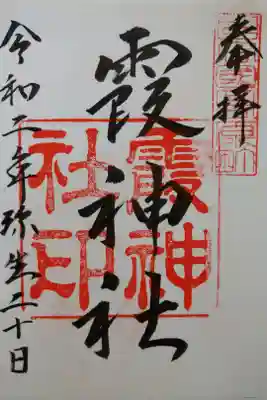 奉拝
霞神社
霞神
社印
令和二年弥生二十日